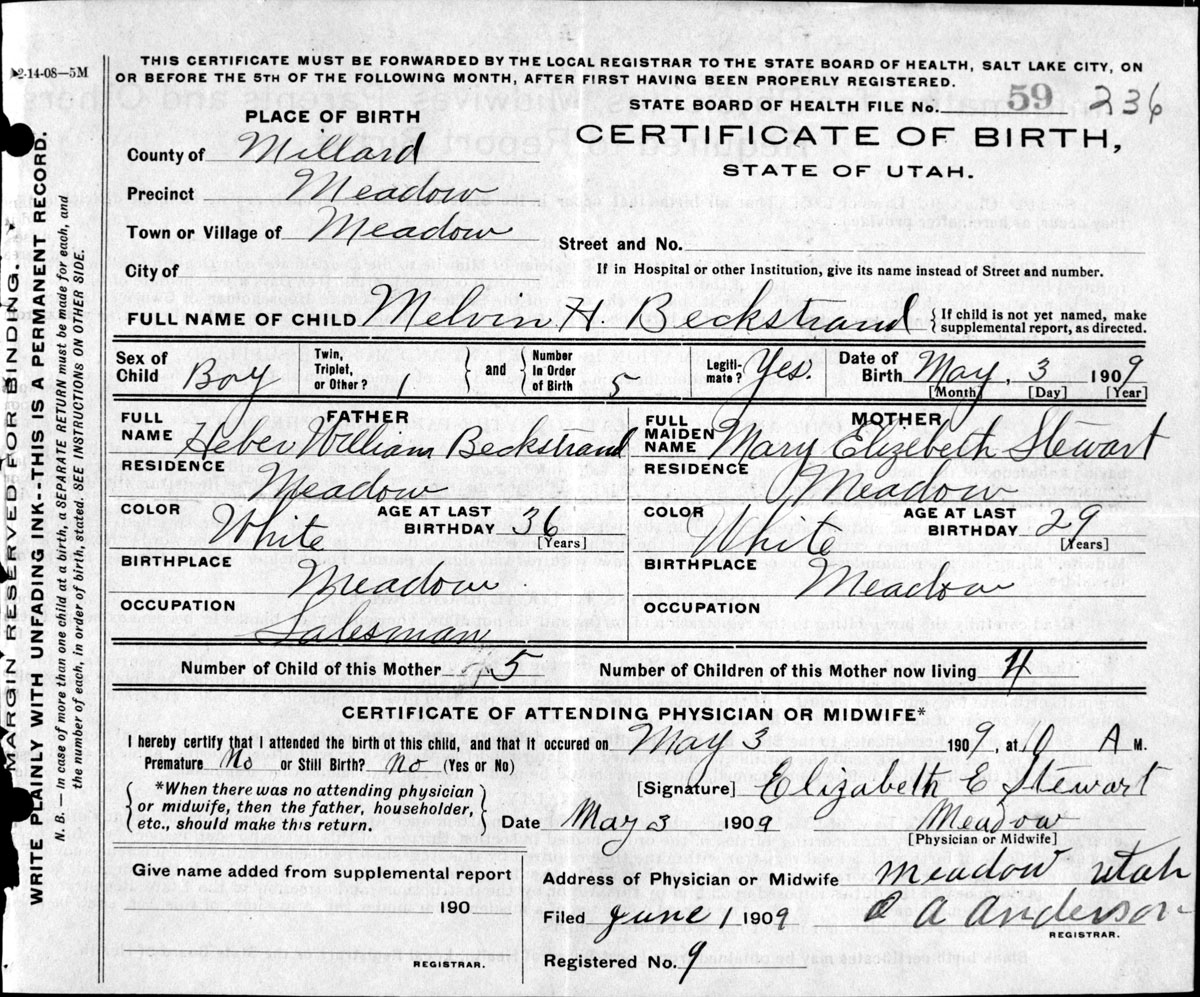 2-14-08—5M
THIS CERTIFICATE MUST BE FORWARDED BY THE LOCAL REGISTRAR TO THE STATE BOARD OF HEALTH, SALT LAKE CITY, ON
OR BEFORE THE 5TH OF THE FOLLOWING MONTH, AFTER FIRST HAVING BEEN PROPERLY REGISTERED.
STATE BOARD OF HEALTH FILE No. 59 236
PLACE OF BIRTH
CERTIFICATE OF BIRTH,
STATE OF UTAH.
County of Millard
Precinct Meadow
Town or Village of Meadow
Street and No.
City of
If in Hospital or other Institution, give its name instead of Street and number.
FULL NAME OF CHILD Melvin H. Beckstrand { If child is not yet named, make
supplemental report, as directed.
Sex of Child Boy Twin, Triplet, or Other? 1 } and { Number In Order of Birth 5 Legiti-mate? Yes. Date of Birth May 3 1909
[Month] [Day] [Year]
FATHER
FULL NAME Heber William Beckstrand
RESIDENCE
Meadow
COLOR White AGE AT LAST BIRTHDAY 36
[Years]
BIRTHPLACE Meadow
OCCUPATION
Salesman
MOTHER
FULL MAIDEN NAME Mary Elizebeth Stewart
RESIDENCE
Meadow
COLOR White AGE AT LAST BIRTHDAY 29
[Years]
BIRTHPLACE Meadow
OCCUPATION
Number of Child of this Mother 5 Number of Children of this Mother now living 4
CERTIFICATE OF ATTENDING PHYSICIAN OR MIDWIFE*
I hereby certify that I attended the birth of this child, and that it occured on May 3 1909, at 10 A M.
Premature No or Still Birth? No (Yes or No)
[Signature] Elizabeth E Stewart
{ *When there was no attending physician
or midwife, then the father, householder,
etc., should make this return. }
Date May 3 1909 Meadow
[Physician or Midwife]
Give name added from supplemental report
190
REGISTRAR.
Address of Physician or Midwife Meadow Utah
Filed June 1 1909 A Anderson
REGISTRAR.
Registered No. 9
MARGIN RESERVED FOR BINDING.
WRITE PLAINLY WITH UNFADING INK--THIS IS A PERMANENT RECORD.
N. B. — In case of more than one child at a birth, a SEPARATE RETURN must be made for each, and
the number of each, in order of birth, stated. SEE INSTRUCTIONS ON OTHER SIDE.